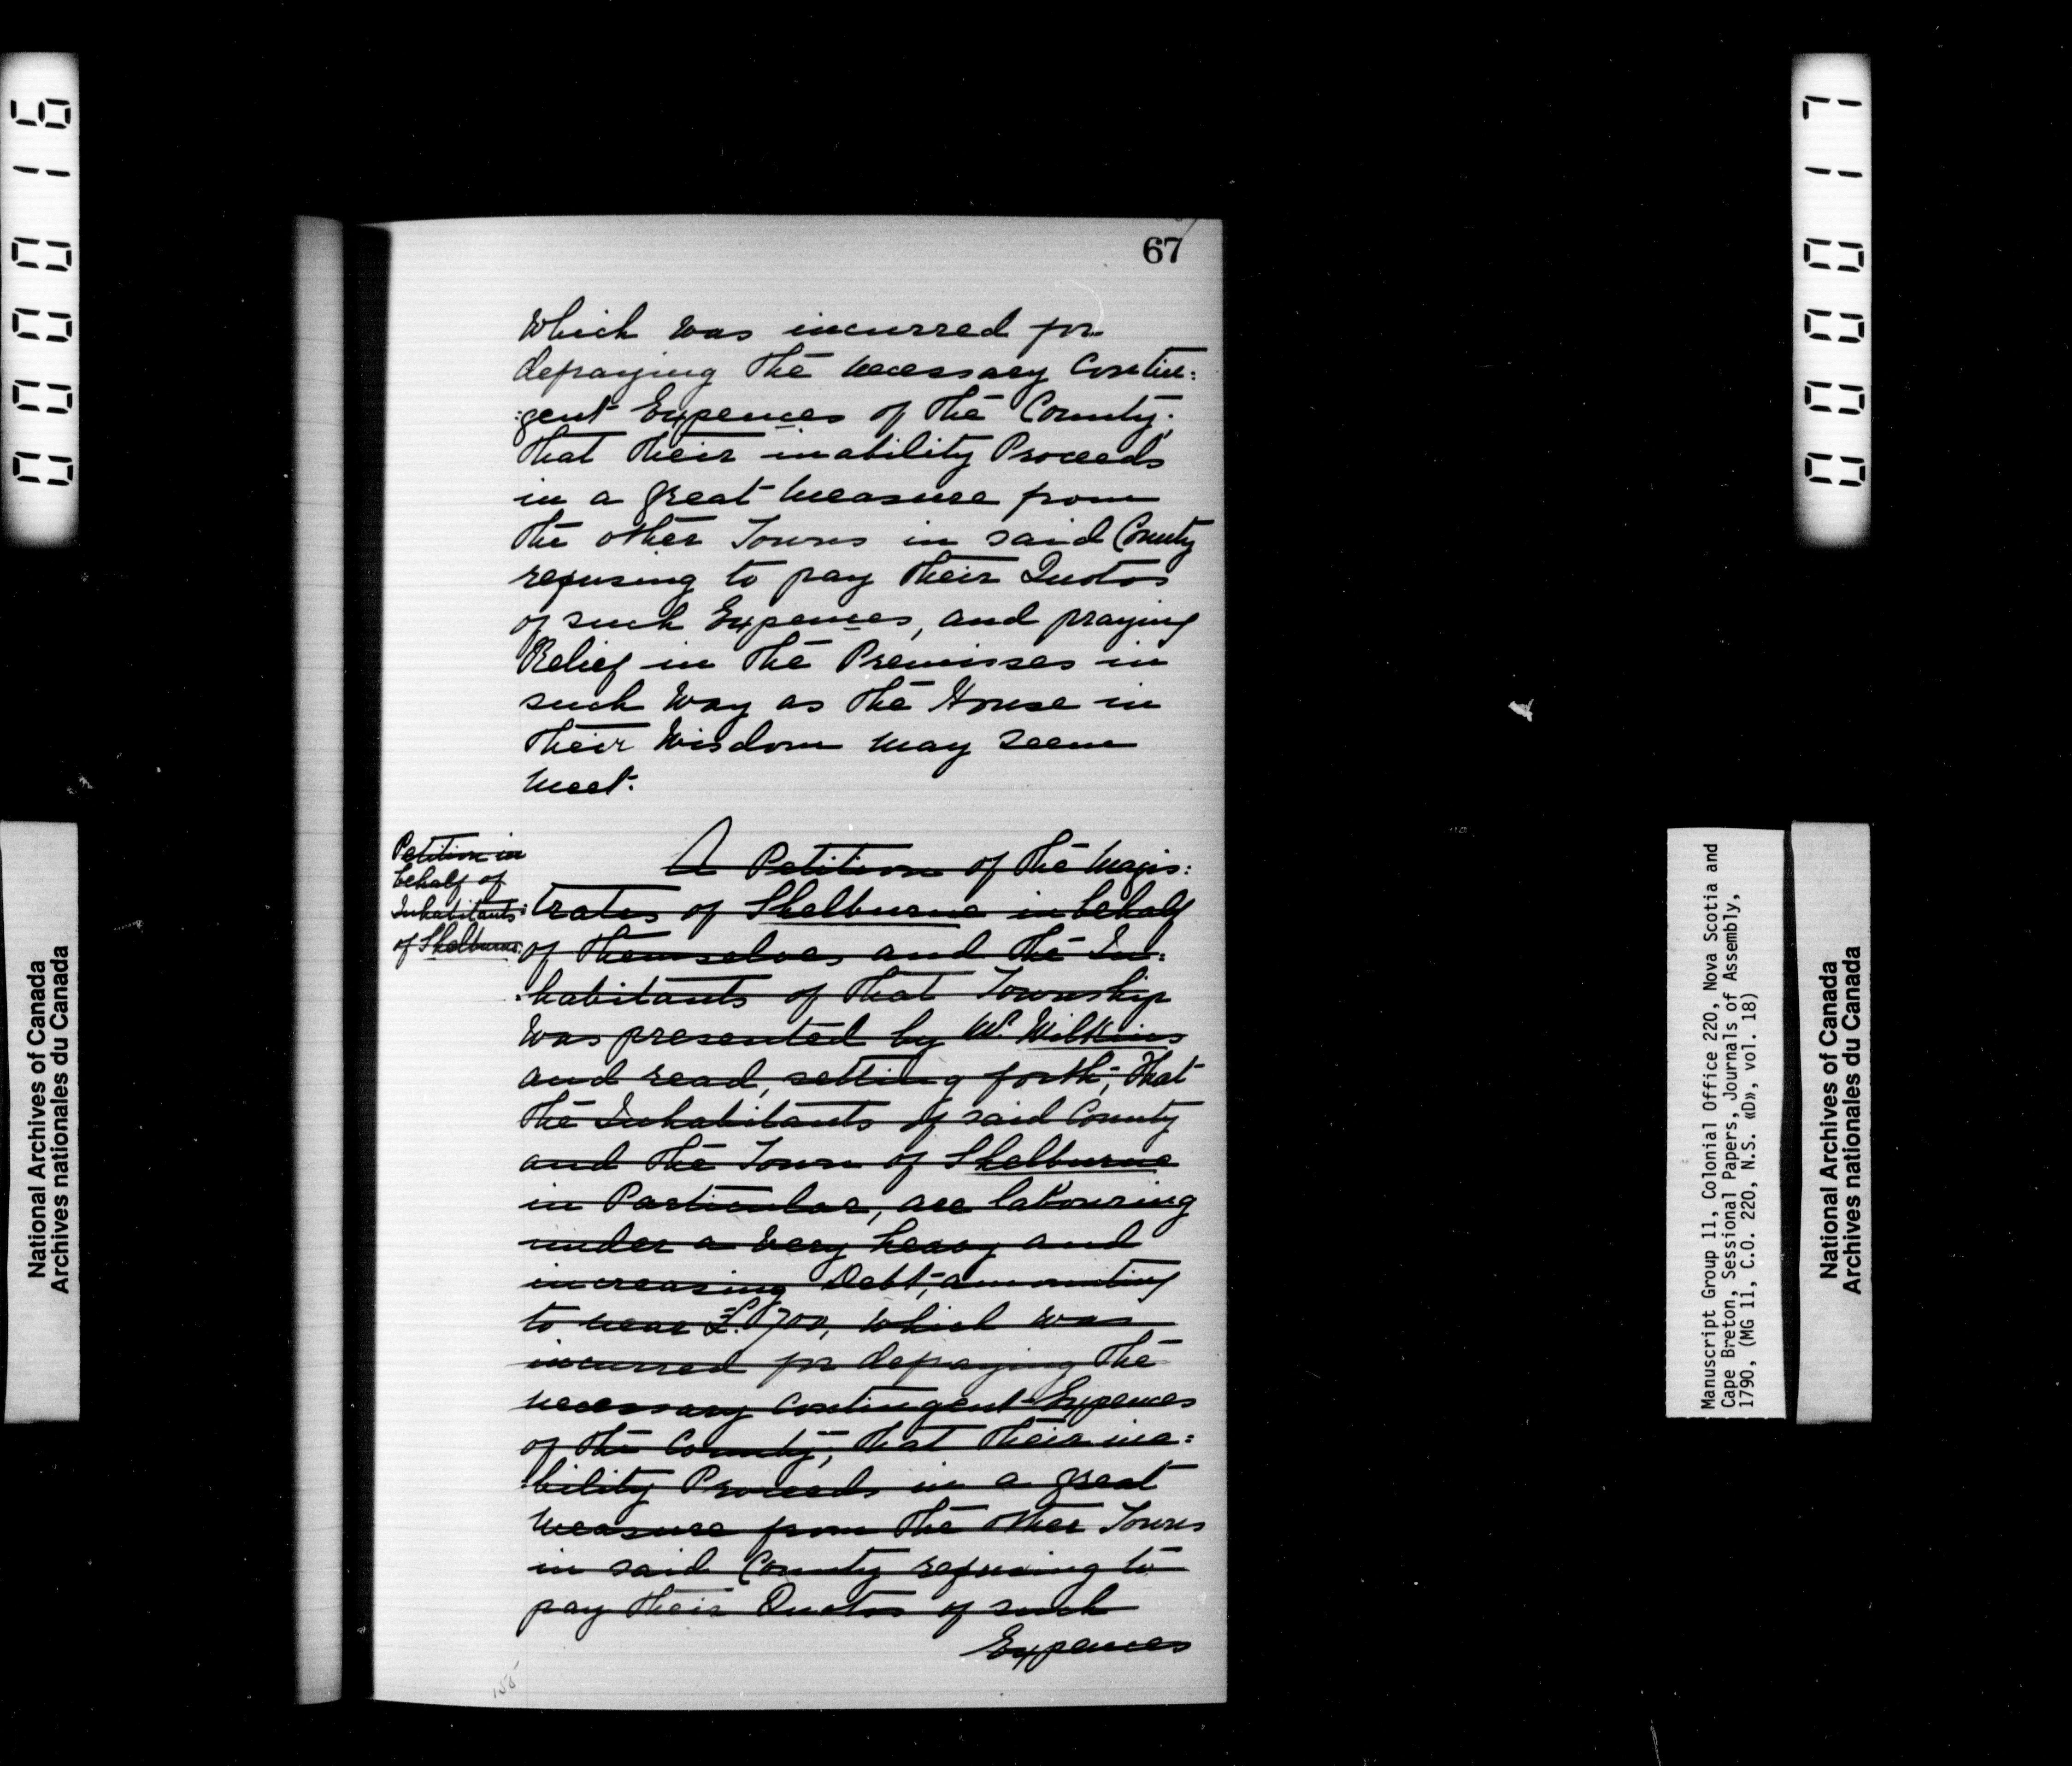 000016
000017
National Archives of Canada
Archives nationales du Canada
67
Which was incurred for
defraying the necessary Contin:
:gent Expences of the County;
that their inability Proceeds
in a great measure from
the other Towns in said County
refusing to pay their Quotas
of such Expences, and praying
Relief in the Premisses in
such Way as the House in
their Wisdom may seem
meet.
Petition in
behalf of
Inhabitants
of Shelburne
A Petition of the Magis:
:trates of Shelburne in behalf
of themselves and the In:
:habitants of that Township
Was presented by Mr. Wilkins
and read, setting forth, That
the Inhabitants of said County
and the Town of Shelburne
in Particular, are labouring
under a very heavy and
increasing Debt, amounting
to near £.1700, which was
incurred for defraying the
necessary contingent Expences
of the County, that their ina:
:bility Proceeds in a great
measure from the other Towns
in said County refusing to
pay their Quotas of such
Expences
155
Manuscript Group 11, Colonial Office 220, Nova Scotia and
Cape Breton, Sessional Papers, Journals of Assembly,
1790, (MG 11, C.O. 220, N.S. «D», vol. 18)
National Archives of Canada
Archives nationales du Canada